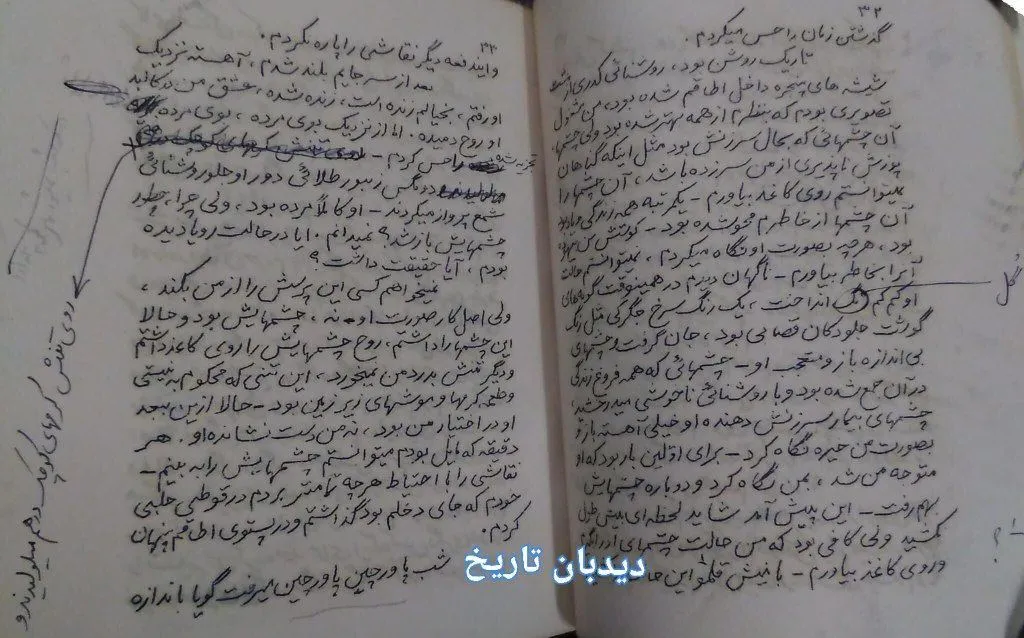 ۳۲
گذشتن زمان را حس میکردم.
تاریک روشن بود، روشنائی کدری از پشت
شیشه های پنجره داخل اطاقم شده بود، من مشغول
تصویری بودم که بنظرم از همه بهتر شده بود ولی چشمها؟
آن چشمهائی که بحال سرزنش بود مثل اینکه گناهان
پوزش ناپذیری از من سر زده باشد، آن چشمها را
نمیتوانستم روی کاغذ بیاورم - یکمرتبه همه زندگی و یاد بود
آن چشمها از خاطرم محو شده بود - کوشش من بیهوده
بود، هر چه بصورت او نگاه میکردم، نمیتوانستم حالت
آنرا بخاطر بیاورم - ناگهان دیدم در همینوقت گونه های
او کم کم گل انداخت، یک رنگ سرخ جگرکی مثل رنگ
گوشت جلو دکان قصابی بود، جان گرفت و چشمهای
بی اندازه باز و متعجب او - چشمهائی که همه فروغ زندگی
در آن جمع شده بود و با روشنائی ناخوشی میدرخشید،
چشمهای بیمار سرزنش دهنده او خیلی آهسته باز و
بصورت من خیره نگاه کرد - برای اولین بار بود که او
متوجه من شد، بمن نگاه کرد و دوباره چشمهایش
بهم رفت - این پیش آمد شاید لحظه ای بیش طول
نکشید ولی کافی بود که من حالت چشمهای او را بگیرم
و روی کاغذ بیاورم - با نیش قلمو این حالت
گل
۳۳
و ایندفعه دیگر نقاشی را پاره نکردم.
بعد از سر جایم بلند شدم، آهسته نزدیک
او رفتم، بخیالم زنده است، زنده شده، عشق من در کالبد
او روح دمیده. اما از نزدیک بوی مرده، بوی مرده
تجزیه شده را حس کردم -
در مگس زنبور طلائی دور او جلو روشنائی
شمع پرواز میکردند - او کاملاً مرده بود، ولی چرا، چطور
چشمهایش باز شد؟ نمیدانم. آیا در حالت رویا دیده
بودم، آیا حقیقت داشت؟
نمیخواهم کسی این پرسش را از من بکند،
ولی اصل کار صورت او - نه، چشمهایش بود و حالا
این چشمها را داشتم، روح چشمهایش را روی کاغذ داشتم
و دیگر تنش بدرد من نمیخورد، این تنی که محکوم به نیستی
و طعمه کرمها و موشهای زیر زمین بود - حالا ازین ببعد
او در اختیار من بود، نه من دست نشانده او. هر
دقیقه که مایل بودم میتوانستم چشمهایش را به بینم -
نقاشی را با احتیاط هر چه تمامتر بردم در قوطی حلبی
خودم که جای دخلم بود گذاشتم و در پستوی اطاقم پنهان
کردم.
شب پاورچین پاورچین میرفت گویا باندازه
روی تنش کرمهای کوچک درهم میلولیدند و
دیدبان تاریخ